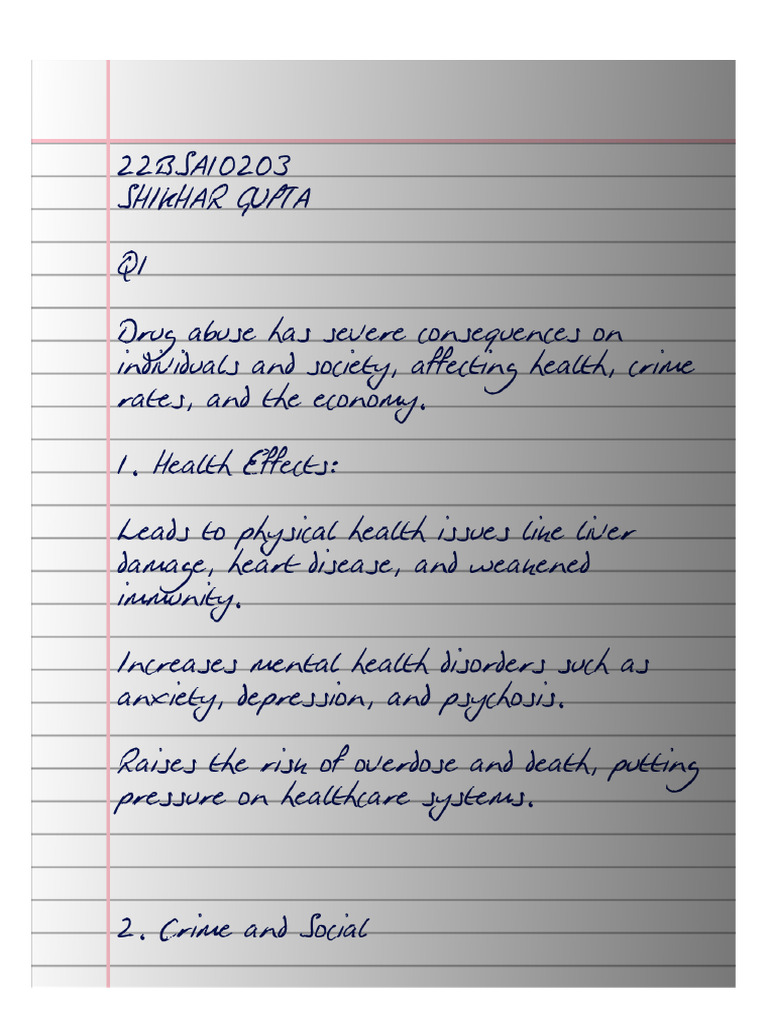 22BSA10203
SHIKHAR GUPTA
Q1
Drug abuse has severe consequences on
individuals and society, affecting health, crime
rates, and the economy.
1. Health Effects:
Leads to physical health issues like liver
damage, heart disease, and weakened
immunity.
Increases mental health disorders such as
anxiety, depression, and psychosis.
Raises the risk of overdose and death, putting
pressure on healthcare systems.
2. Crime and Social